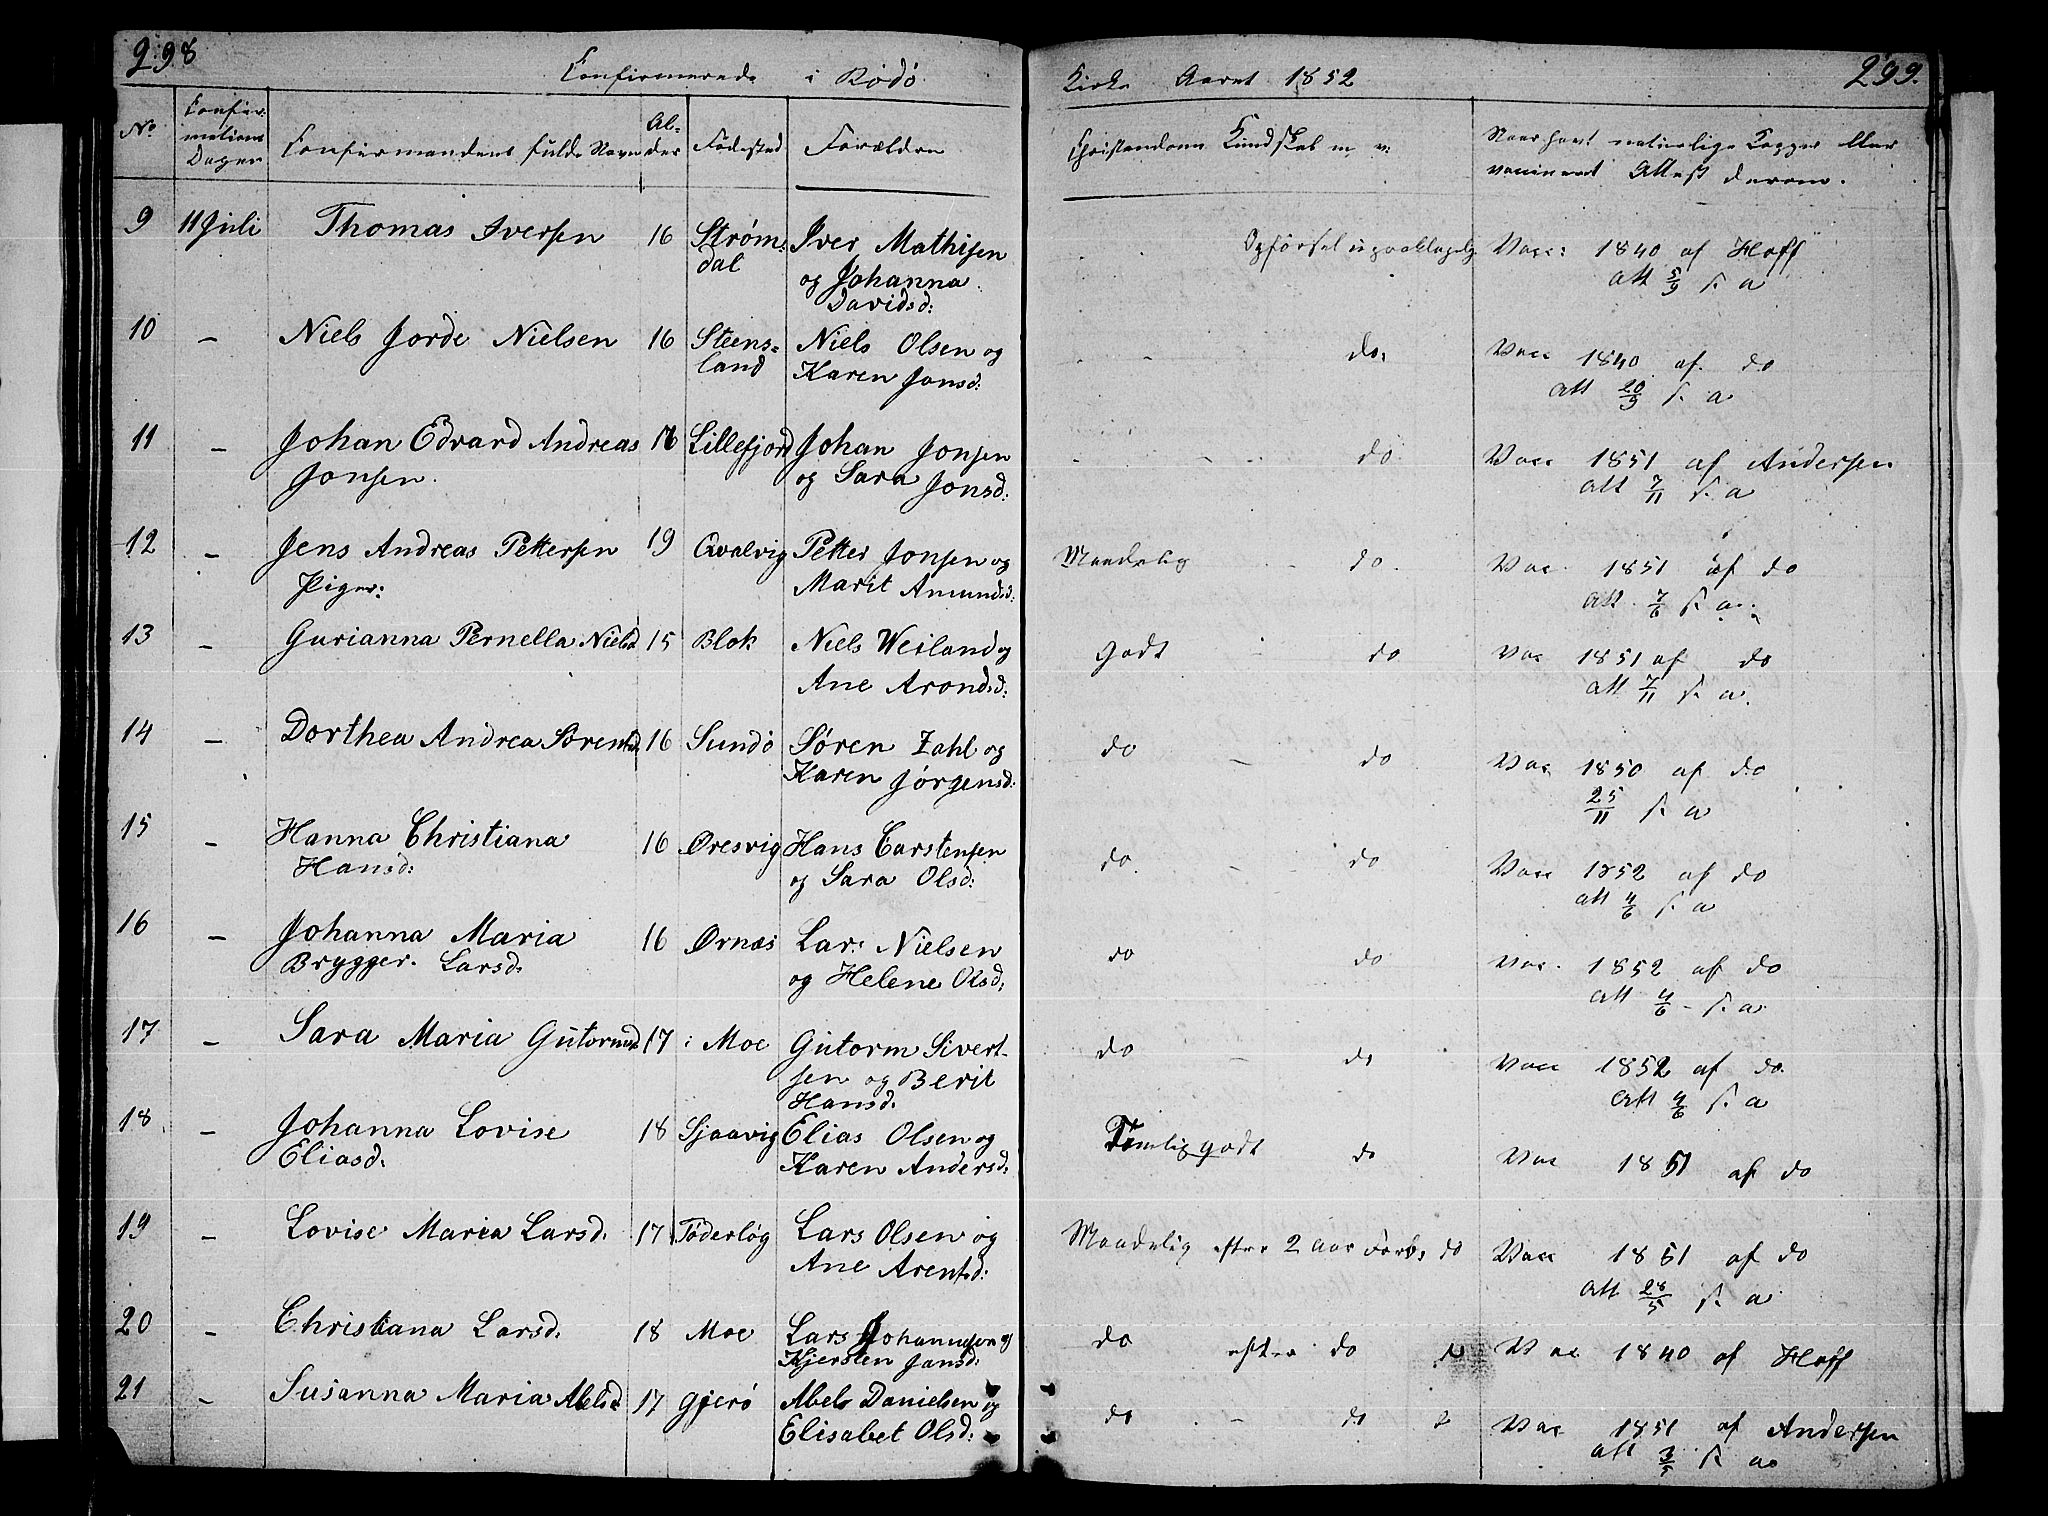 298
Confirmerede i Rødø
Kirke Aaret 1852
299.
No
Confir-
mations
Dagen
Confirmandens fulde Navn
Al-
der
Fødested
Forældre
Christendoms Kundskab m. v:
Naar havt naturlige Kopper eller
vaccineret Attest derom.
9 11 Juli Thomas Iversen 16 Strøm-
dal
Iver Mathisen
og Johanna
Davidsd:
Opførsel upaaklagelig Vacc: 1840 af Hoff
att 5/9 s. a
10 – Niels Jorde Nielsen 16 Steens-
land
Niels Olsen og
Karen Jonsd:
do: Vacc 1840 af do
att 20/9 s. a
11 – Johan Edvard Andreas
Jonsen.
16 Lillefjord Johan Jonsen
og Sara Jonsd:
do Vacc 1851 af Andersen
att 7/11 s. a
12 – Jens Andreas Pettersen 19 Qvalvig Petter Jonsen og
Marit Amundsd:
Maadelig do. Vac. 1851 af do
att. 7/6 s. a.
Piger:
13 – Gurianna Pernella Nielsd 15 Blok Niels Weiland og
Ane Arondsd:
Godt do Vac 1851 af do
att 7/11 s. a.
14 – Dorthea Andrea Sørensd 16 Sundø Søren Zahl og
Karen Jørgensd:
do – do Vac 1850 af do
25/11 s. a
15 – Hanna Christiana
Hansd:
16 Øresvig Hans Carstensen
og Sara Olsd:
do. – do Vacc 1852 af do
att 4/6 s. a
16 – Johanna Maria
Brygger. Larsd.
16 Ørnæs Lars Nielsen
og Helene Olsd,
do do Vac. 1852 af do
att 4/6 – s. a
17 – Sara Maria Gutormsd 17 Moe Gutorm Sivert-
sen og Berit
Hansd.
do – do Vacc 1852 af do.
att 4/6 s. a
18 – Johanna Lovise
Eliasd.
18 Sjaavig Elias Olsen og
Karen Andersd:
Temlig godt do Vac 1851 af do
19 – Lovise Maria Larsd. 17 Töderløg Lars Olsen og
Ane Arentsd:
Maadelig efter 2 Aars Forb. do Vacc 1851 af do
att 28/5 s. a
20 – Christiana Larsd. 18 Moe Lars Johannsen og
Kjersten Jansd:
do efter do do Vac 1840 af Hoff
21 – Susanna Maria Abelsd 17 Gjerø Abels Danielsen og
Elisabet Olsd:
do – do Vac 1851 af Andersen
att 3/5 s. a.